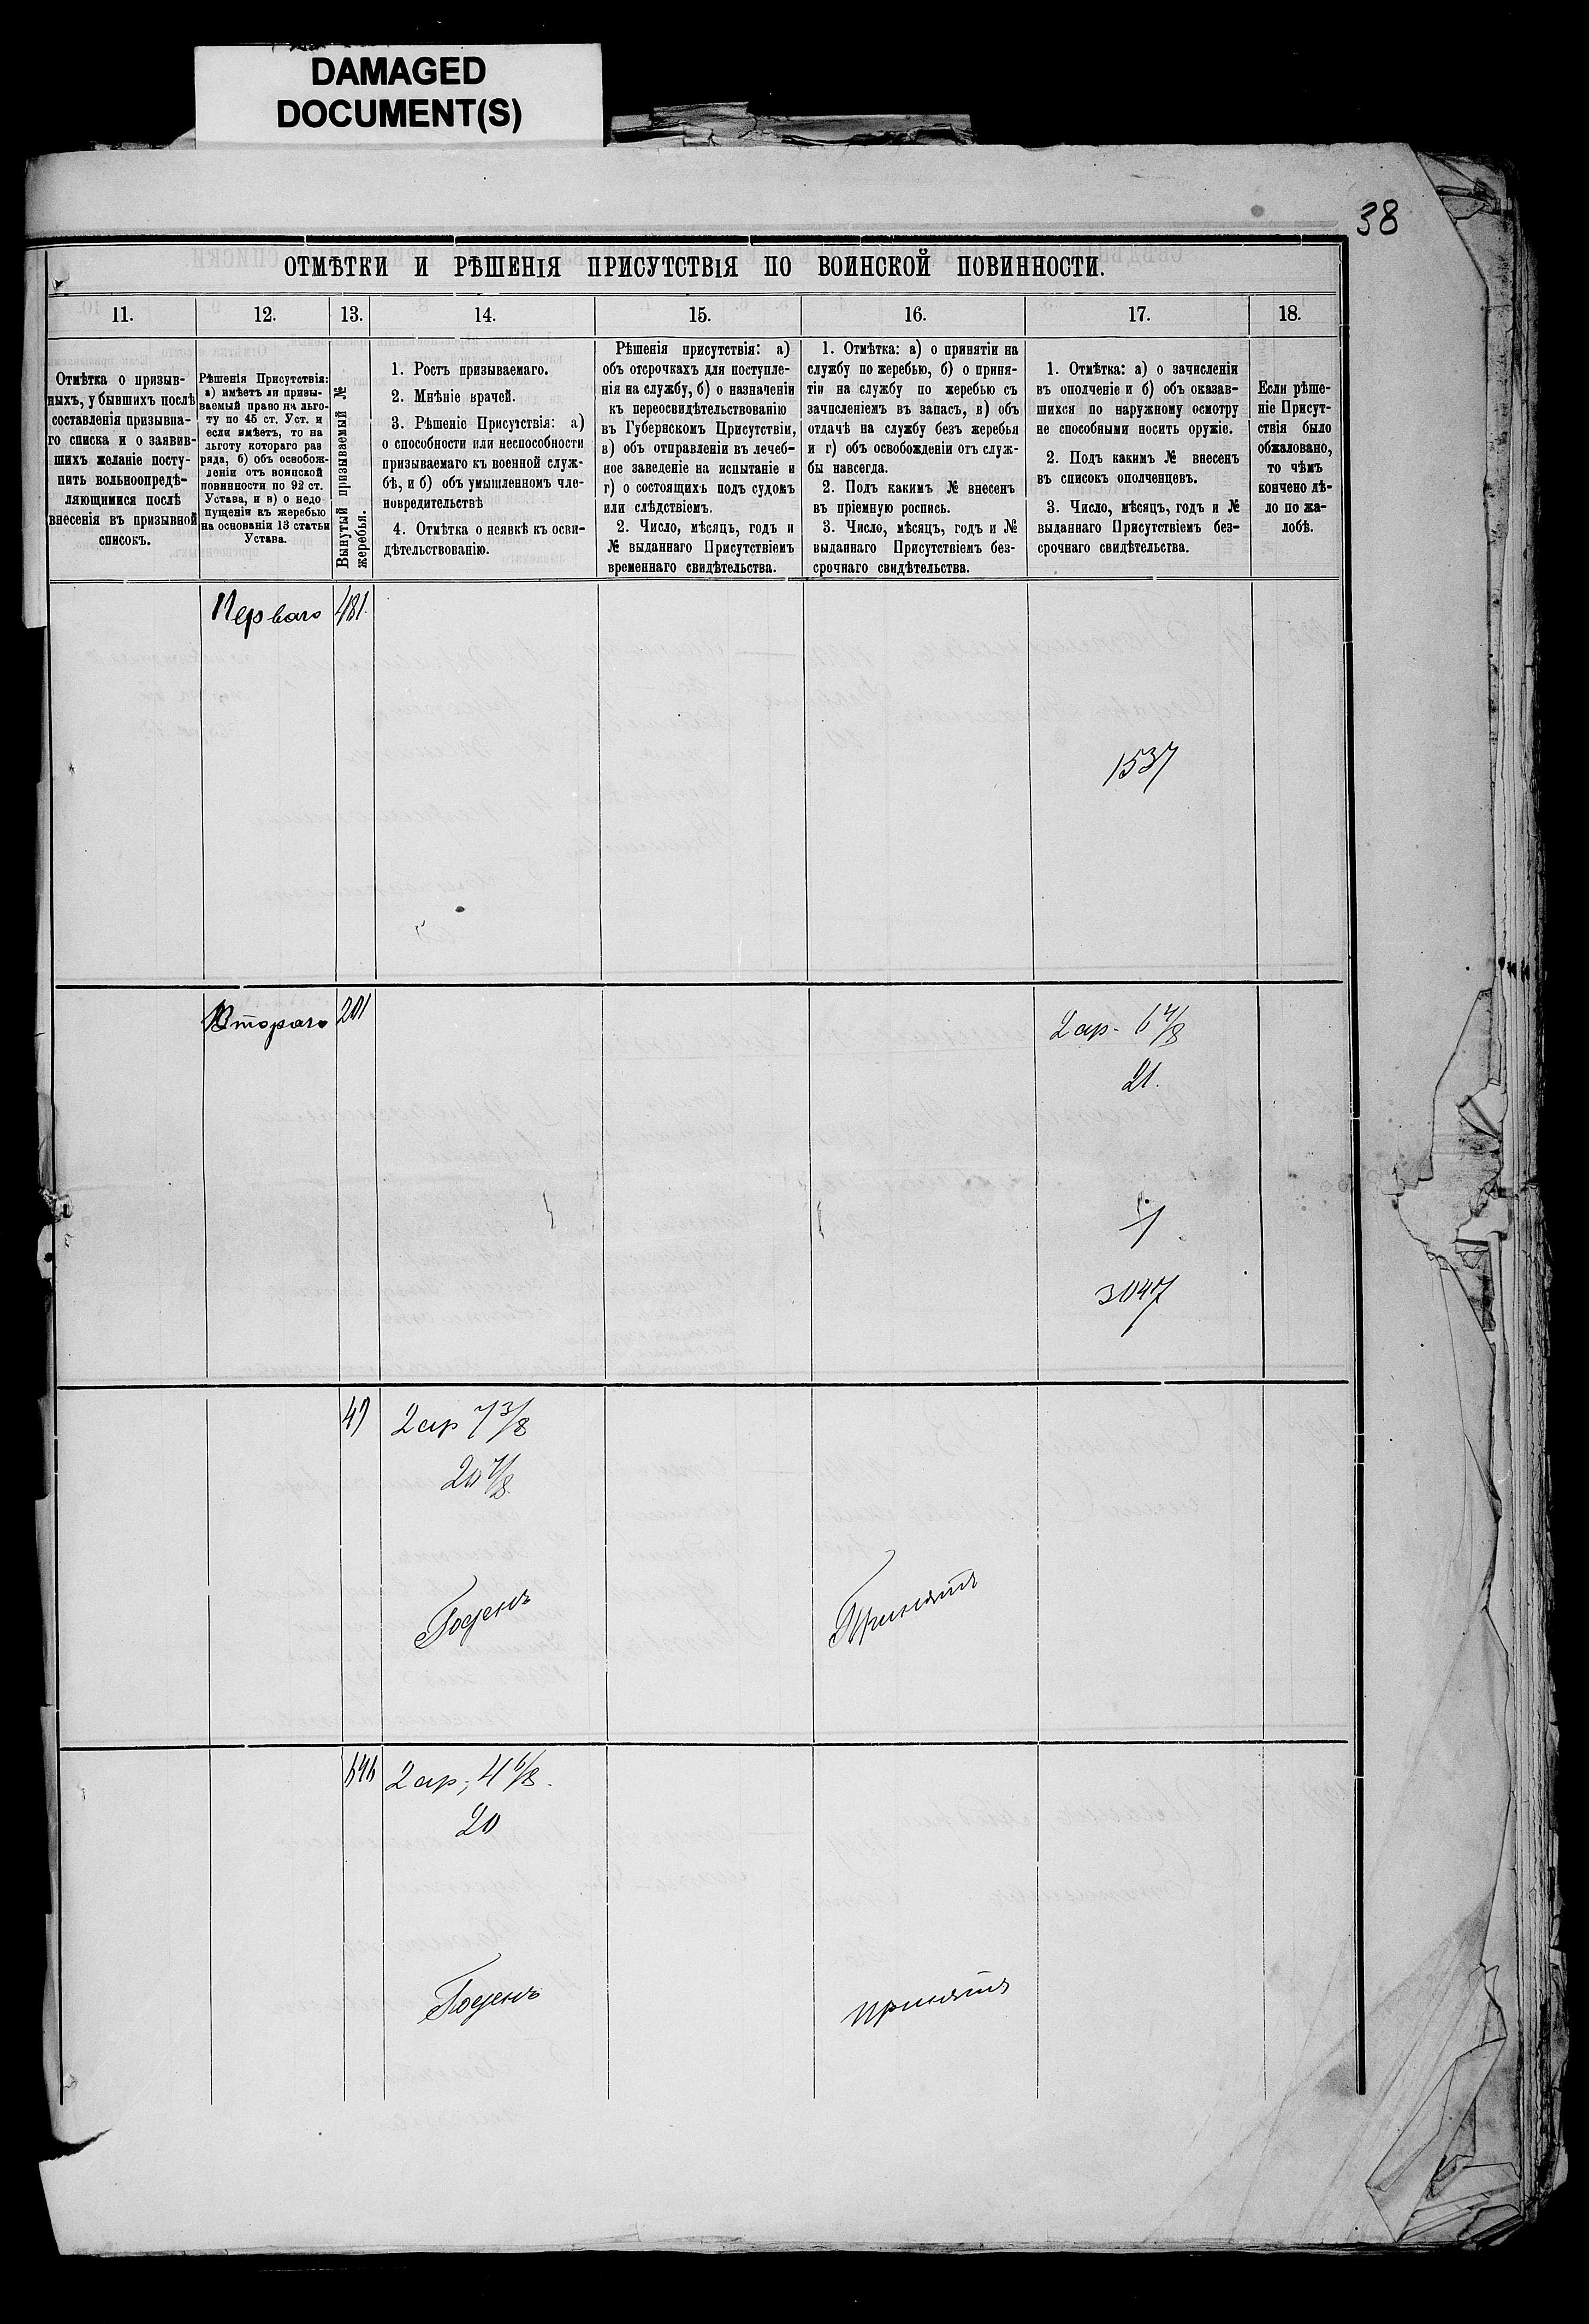 DAMAGED
DOCUMENT(S)
38
ОТМѢТКИ И РѢШЕНІЯ ПРИСУТСТВІЯ ПО ВОИНСКОЙ ПОВИННОСТИ.
11.
12.
13.
14.
15.
16.
17.
18.
Отмѣтка о призыв-
ныхъ, у бывшихъ послѣ
составленія призывна-
го списка и о заявив-
шихъ желаніе посту-
пить вольноопредѣ-
ляющимися послѣ
внесенія въ призывной
списокъ.
Рѣшенія Присутствія:
а) имѣетъ ли призы-
ваемый право на льго-
ту по 45 ст. Уст. и
если имѣетъ, то на
льготу котораго раз
ряда, б) объ освобож-
деніи отъ воинской
повинности по 92 ст.
Устава, и в) о недо
пущеніи къ жеребью
на основаніи 13 статьи
Устава.
Вынутый призываемый №
жеребья.
1. Ростъ призываемаго.
2. Мнѣніе врачей.
3. Рѣшеніе Присутствія: а)
о способности или неспособности
призываемаго къ военной служ-
бѣ, и б) объ умышленномъ чле-
новредительствѣ
4. Отмѣтка о неявкѣ къ осви-
дѣтельствованію.
Рѣшенія присутствія: а)
объ отсрочкахъ для поступле-
нія на службу, б) о назначеніи
къ переосвидѣтельствованію
въ Губернскомъ Присутствіи,
в) объ отправленіи въ лечеб-
ное заведеніе на испытаніе и
г) о состоящихъ подъ судомъ
или слѣдствіемъ.
2. Число, мѣсяцъ, годъ и
№ выданнаго Присутствіемъ
временнаго свидѣтельства.
1. Отмѣтка: а) о принятіи на
службу по жеребью, б) о приня-
тіи на службу по жеребью съ
зачисленіемъ въ запасъ, в) объ
отдачѣ на службу безъ жеребья
и г) объ освобожденіи отъ служ-
бы навсегда.
2. Подъ какимъ № внесенъ
въ пріемную роспись.
3. Число, мѣсяцъ, годъ и №
выданнаго Присутствіемъ без-
срочнаго свидѣтельства.
1. Отмѣтка: а) о зачисленіи
въ ополченіе и б) объ оказав-
шихся по наружному осмотру
не способными носить оружіе.
2. Подъ какимъ № внесенъ
въ списокъ ополченцевъ.
3. Число, мѣсяцъ, годъ и №
выданнаго Присутствіемъ без-
срочнаго свидѣтельства.
Если рѣше-
ніе Присут-
ствія было
обжаловано,
то чѣмъ
кончено дѣ-
ло по жа-
лобѣ.
Перваго 481.
1537
Втораго 201
2 ар. 6 4/8
21.
3047
47 2 ар 7 3/8
20 4/8
Годенъ Принятъ
646 2 ар; 4 6/8.
20
Годенъ принятъ